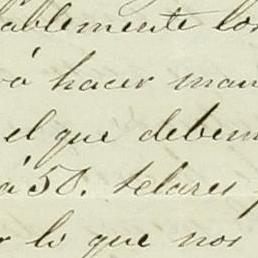 ablemente los
á hacer man
el que debem
á 50. telares
lo que nos